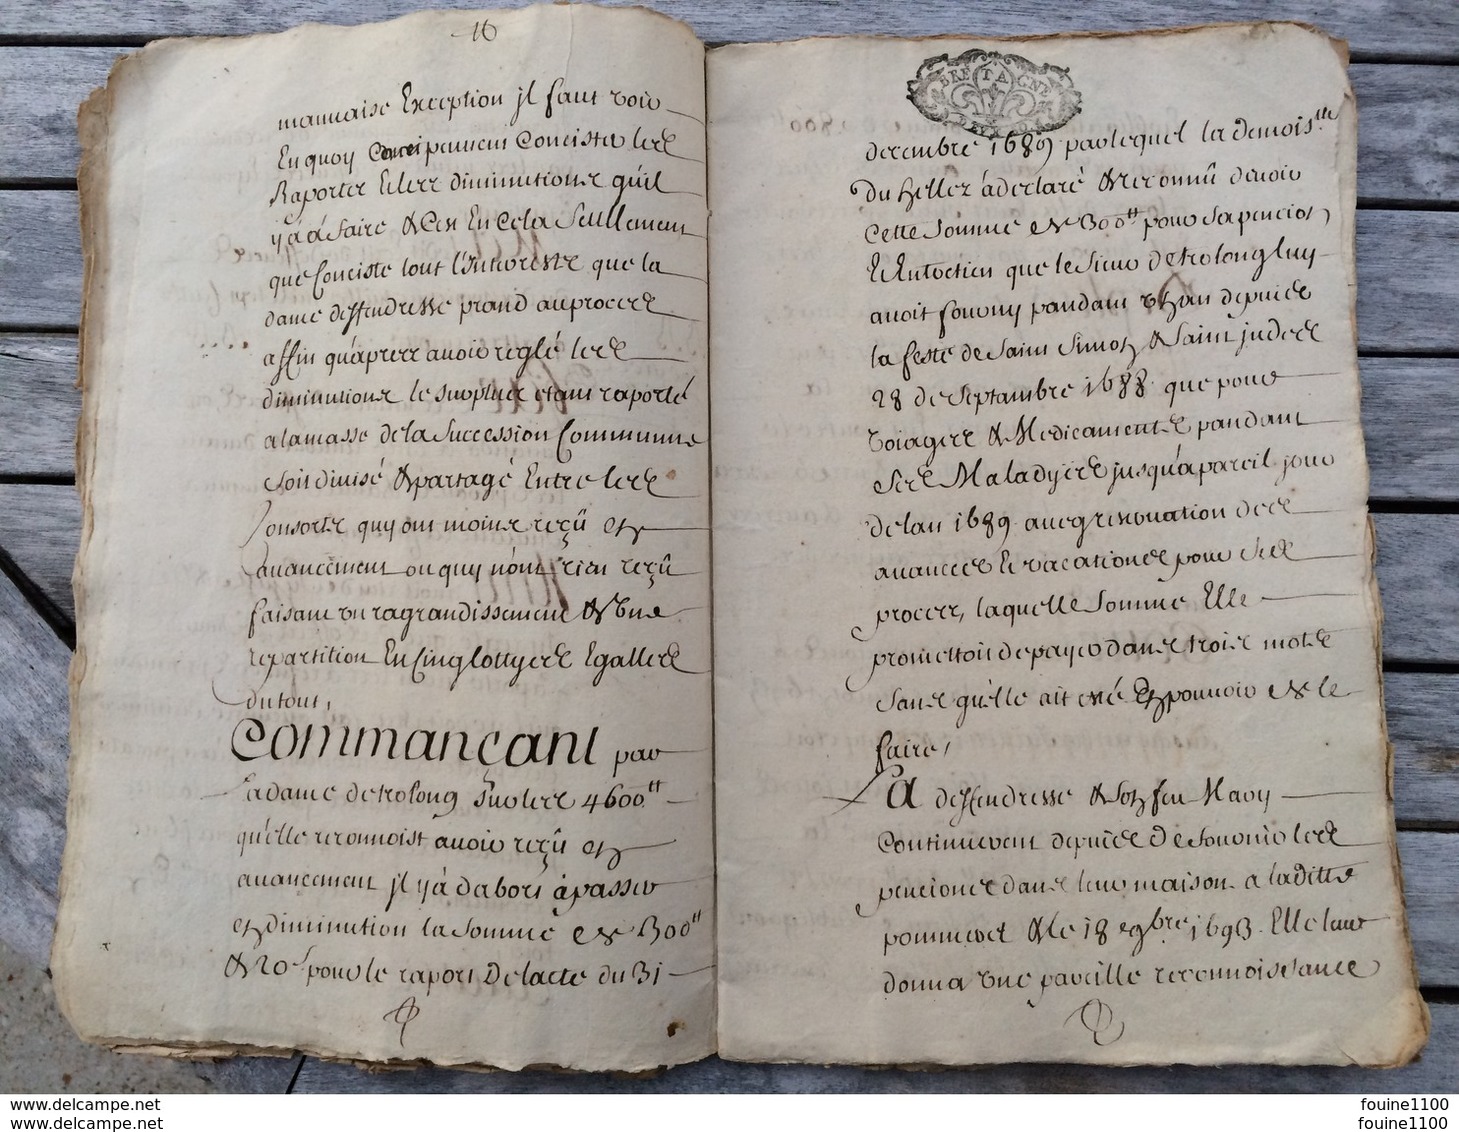 16
mauvaise Exception jl faut voir
En quoy peuvent Concister les
Raportz Et les diminutions qu'il
y a à faire & C'en En Cela Seullement
que Conciste tout l'Interestz que la
dame deffendresse prand au proces
affin qu'apres avoir reglé les
diminutions le surplus etant raporté
a la masse de la Succession Commune
soit divisé & partagé Entre les
Consortz quy ont moins reçû en
avancement ou quy n'ont rien reçû
faisant un ragrandissement & une
repartition En Cinq lottyes Egalles
du tout,
Commançant par
La dame detrolong sur les 4600 tt
qu'elle reconnoist avoir reçû en
avancement jl y a d'abort à passer
en diminution la Somme de 300 tt
& 20 s pour le raport De lacte du 31
BRETAGNE
decembre 1689 par lequel la demois.lle
du hellez a declaré & reconnû devoir
cette Somme de 300 tt pour sa pencion
Et Entoctien que le Sieur detrolong luy
avoit fourny pandant un an depuis
la feste de Saint Simon & Saint judes
28 de Septambre 1688 que pour
voiages & Medicamentz pandant
Ses Maladyes jusqu'a pareil jour
de lan 1689 avec renovation des
avances Et vacations pour ses
proces, laquelle Somme Elle
promettoit de payer dans trois mois
sans qu'elle ait eté En pouvoir de le
faire,
La deffendresse & son feu Mary
Continuerent depuis De fournir les
pencions dans leur maison a laditte
pommeret & le 18 9bre 1693 Elle leur
donna une pareille reconnoissance
fouine1100
fouine1100